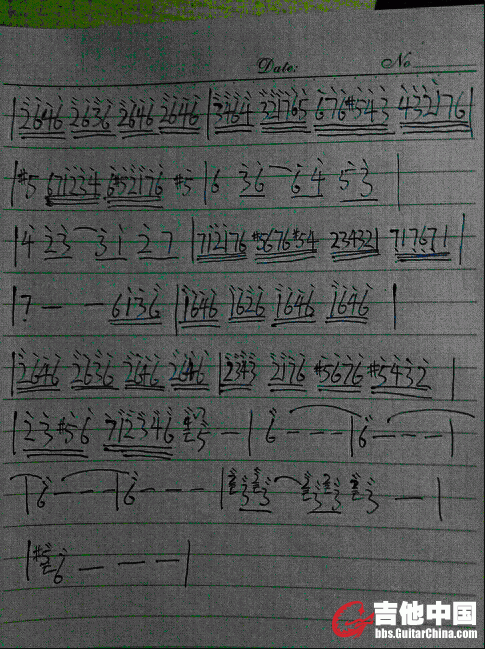 Date: No
|2646 2636 2646 2646 |3464 321765 676#543 432176|
|#5 671234 6#52176 #5 |6 36 64 53 |
|4 23 31 27 |712176 #5676#54 23432 |717671|
|7 — — 6136 |1646 1626 1646 1646 |
|2646 2636 2646 2646 |2343 2176 #5676 #5432 |
|23#56 712346 5 — |6 — — — |6 — — — |
|6 — — — |6 — — — |3 3 3 3 3 — |
|#5 6 — — — |
吉他中国
bbs.GuitarChina.com